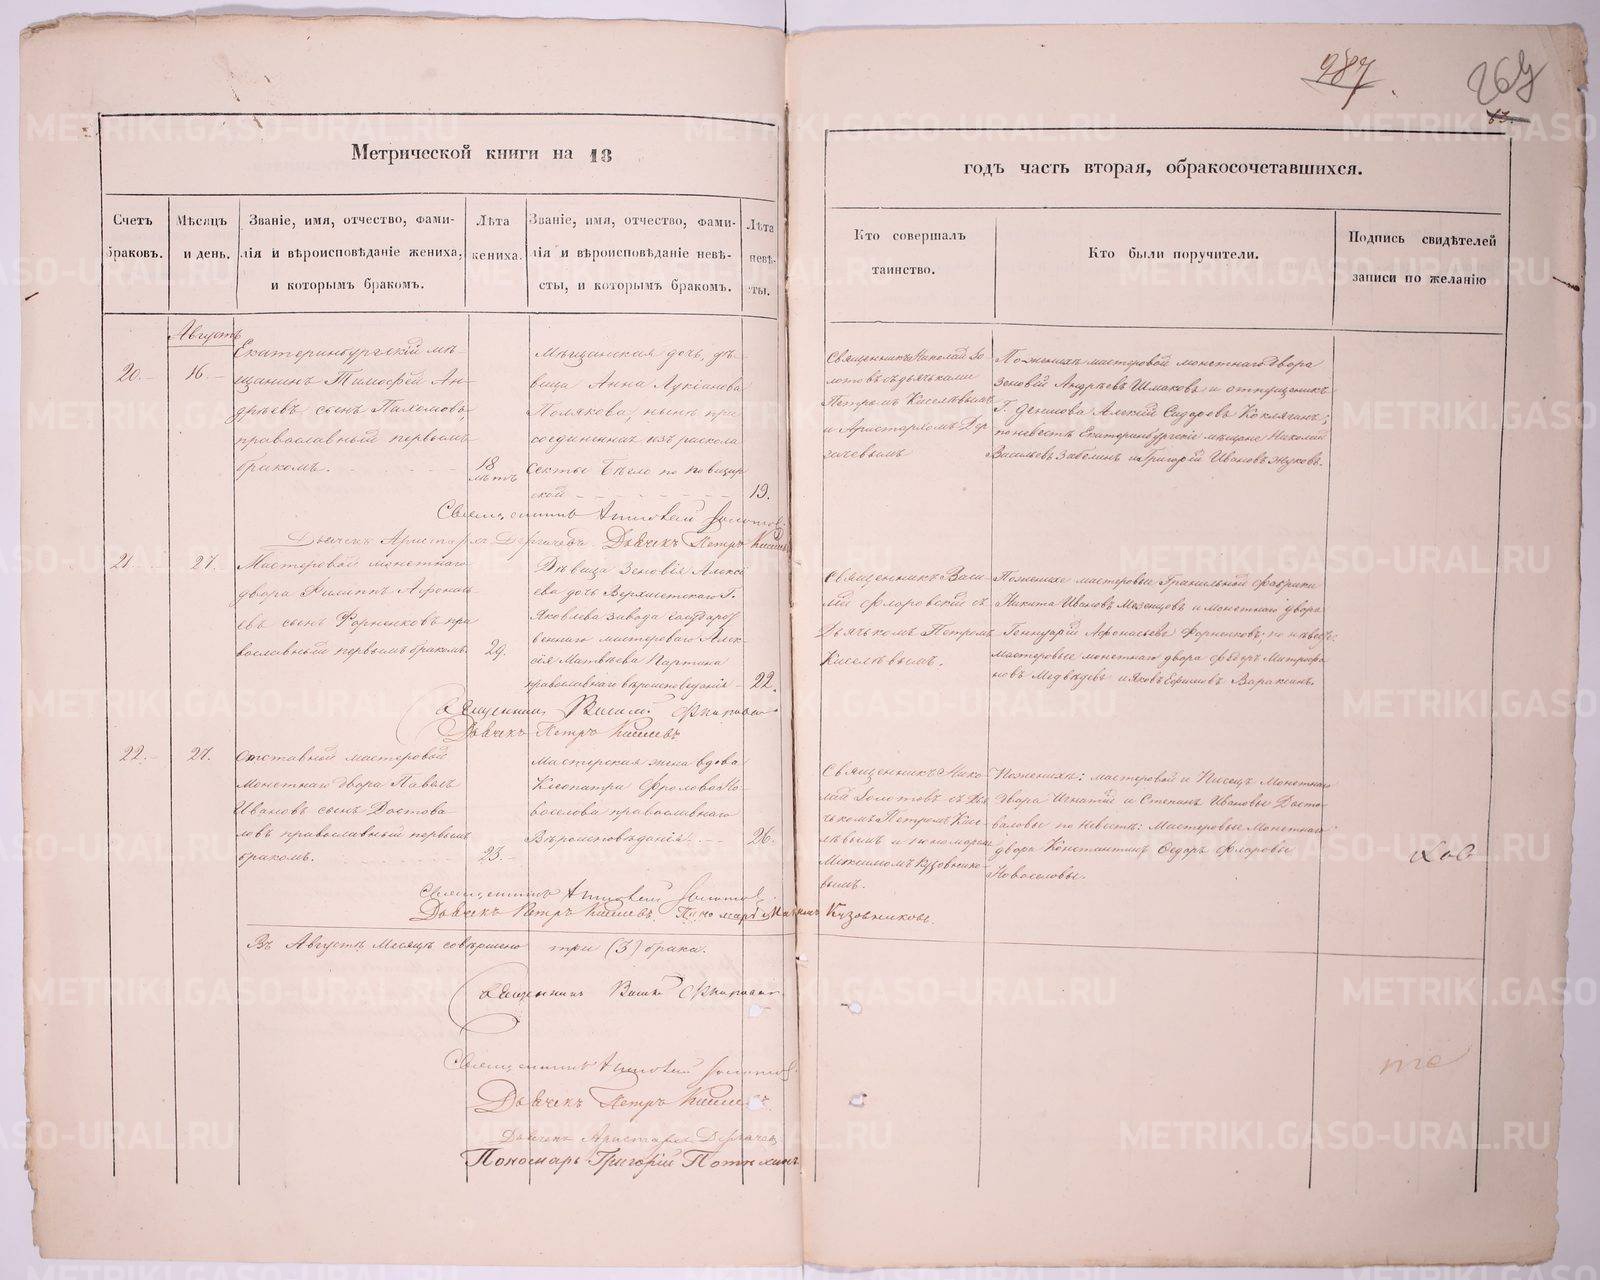 987
267
83.
Метрической книги на 18
годъ часть вторая, обракосочетавшихся.
Счетъ браковъ.
Мѣсяцъ и день.
Званіе, имя, отчество, фами-
лія и вѣроисповѣданіе жениха,
и которымъ бракомъ.
Лѣта
жениха.
Званіе, имя, отчество, фами-
лія и вѣроисповѣданіе невѣ-
сты, и которымъ бракомъ.
Лѣта
невѣ-
сты.
Кто совершалъ
таинство.
Кто были поручители.
Подпись свидѣтелей
записи по желанію
Августъ
20.-
16.-
Екатеринбургскій мѣ-
щанинъ Тимофей Ан-
дрѣевъ сынъ Пахомовъ,
православный первымъ
бракомъ.
18
лѣтъ
Мѣщанская дочь, дѣ-
вица Анна Лукіанова
Полякова, нынѣ при
соединенная изъ раскола
Секты Бѣгло по повщин
ской
19.
Священникъ Николай Зо-
лотовъ съ дьячками
Петромъ Киселевымъ
и Аристархомъ Дер
гачевымъ
По женихѣ мастеровой монетнаго двора
Зеновій Андрѣевъ Шмаковъ и отпущенникъ
Г. Демидова Алексій Сидоровъ
по невестѣ Екатеринбургскіе мѣщане Николай
Васильевъ Забелинъ и Григорій Ивановъ Жуковъ.
Священникъ Николай Золотов
Дьячекъ Аристархъ Дергачевъ. Дьячекъ Петръ Киселевъ
21.-
27.
Мастеровой монетнаго
двора Филиппъ Афонась
евъ сынъ Форненковъ пра
вославный первымъ бракомъ.
29.
Дѣвица Зеновія Алексѣ
ева дочь Верхисетскаго Г.
Яковлева завода
мастероваго Алек-
сія Матвѣева Партина
православнаго вѣроисповеданія
22.
Священникъ Васи-
лій Флоровскій съ
Дьячкомъ Петромъ
Киселевымъ.
По женихе мастеровые Гранильной фабрики
Никита Ивановъ Мезенцовъ и монетнаго двора
Геннуарій Афонасьевъ Форненковъ; по невестѣ
мастеровые монетнаго двора Федоръ Митрофа
новъ Медведевъ и Яковъ Ефимовъ Вараксинъ.
Священникъ Василій Флоровскій
Дьячекъ Петръ Киселевъ
22.-
27.
Отставной мастеровой
Монетнаго двора Павелъ
Ивановъ сынъ Достова
ловъ православный первымъ
бракомъ.
23.-
Мастерская жена вдова
Клеопатра Фролова Но-
воселова православнаго
Вѣроисповѣданія.
26.
Священникъ Нико-
лай Золотовъ съ Дья
чкомъ Петромъ Кисе-
левымъ и пономаремъ
Максимомъ Кузовнико-
вымъ.
По женихѣ: мастеровой и Писецъ Монетнаго
двора Игнатій и Степанъ Ивановы Досто-
валовы по невестѣ: Мастеровые Монетнаго
двора Константинъ Федоръ Флоровы
Новоселовы.
Священникъ Николай Золотов
Дьячекъ Петръ Киселевъ. Пономарь Максимъ Кузовниковъ.
Въ Августѣ Месяцѣ совершено три (3) брака.
Священникъ Василій Флоровскій
Священникъ Николай Золотов
Дьячекъ Петръ Киселевъ
Дьячекъ Аристархъ Дергачевъ
Пономарь Григорій Потѣхинъ
METRIKI.GASO-URAL.RU